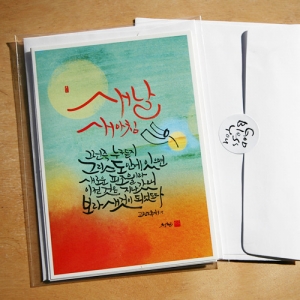 새날
새아침
그런즉 누구든지
그리스도 안에 있으면
새로운 피조물이라
이전 것은 지나갔으니
보라 새것이 되었도다
God
Bless
You